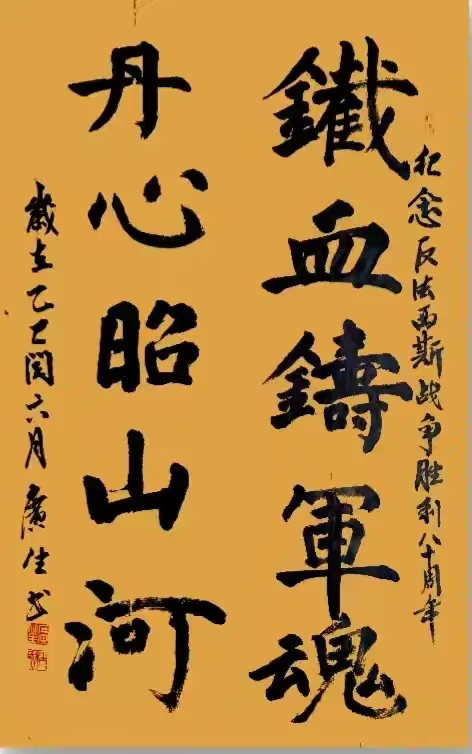 纪念反法西斯战争胜利八十周年
鐵血鑄軍魂
丹心昭山河
歲在乙巳闰六月廣生书